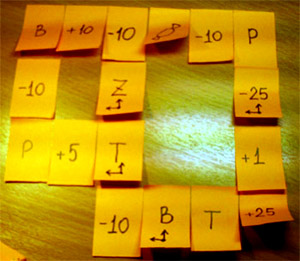 B +10 -10 -10 P
-10 Z -25
P +5 T +1
-10 B T +25